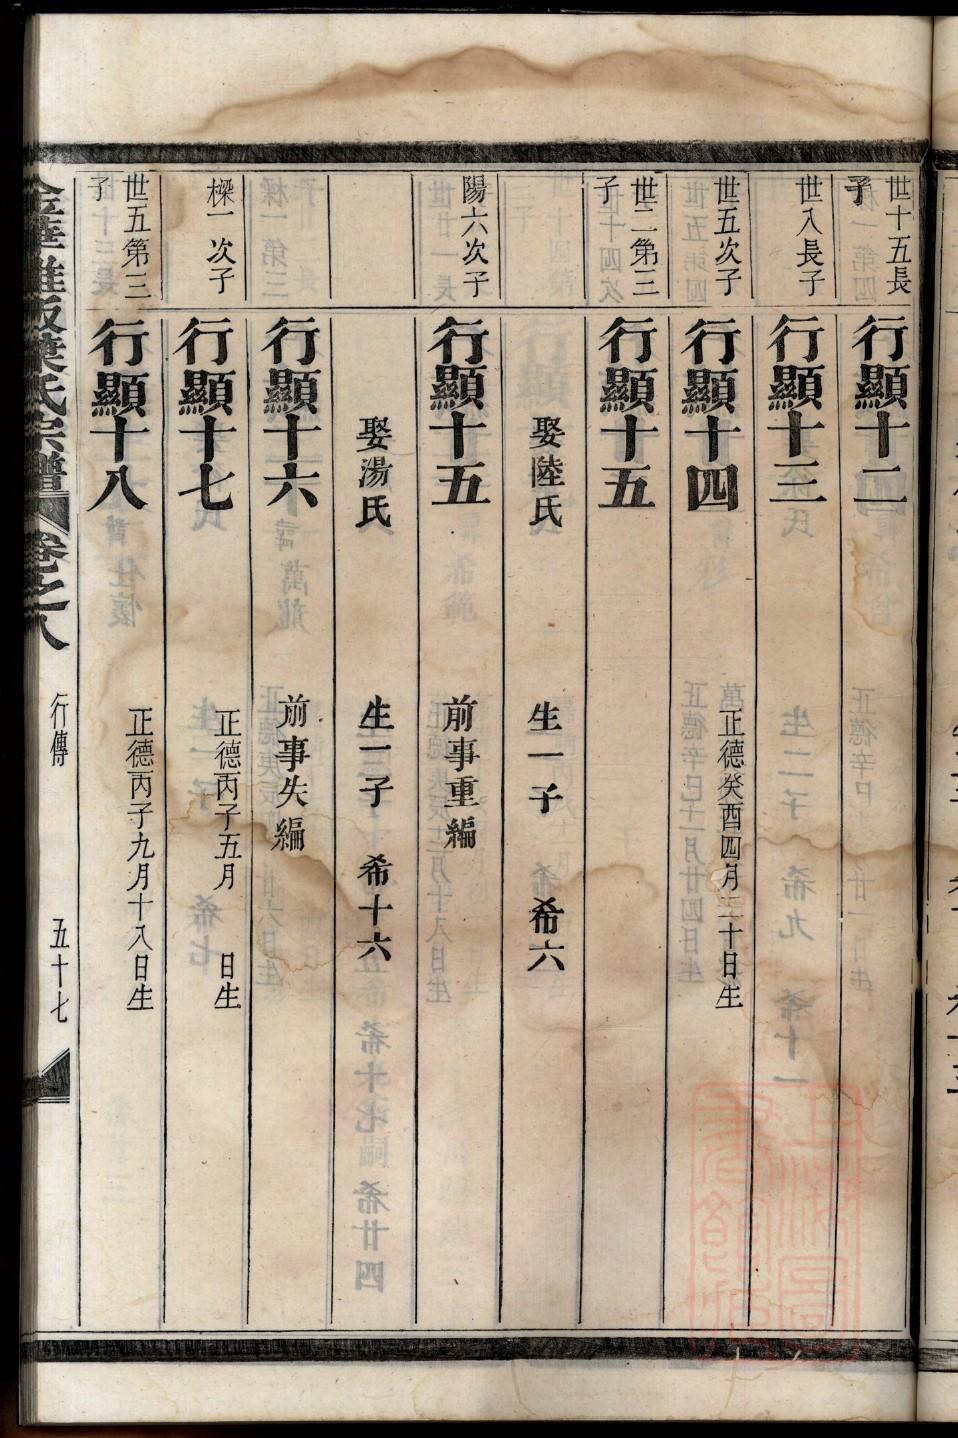 世十五長子
行顯十二
世八長子
行顯十三
世五次子
行顯十四
正德癸酉四月二十日生
世二第三子
行顯十五
娶陸氏
生一子 希六
陽六次子
行顯十五
前事重編
娶湯氏
生一子 希十六
行顯十六
前事失編
樑一次子
行顯十七
正德丙子五月 日生
世五第三子
行顯十八
正德丙子九月十八日生
葉氏宗譜 卷之八
行傳
五十七